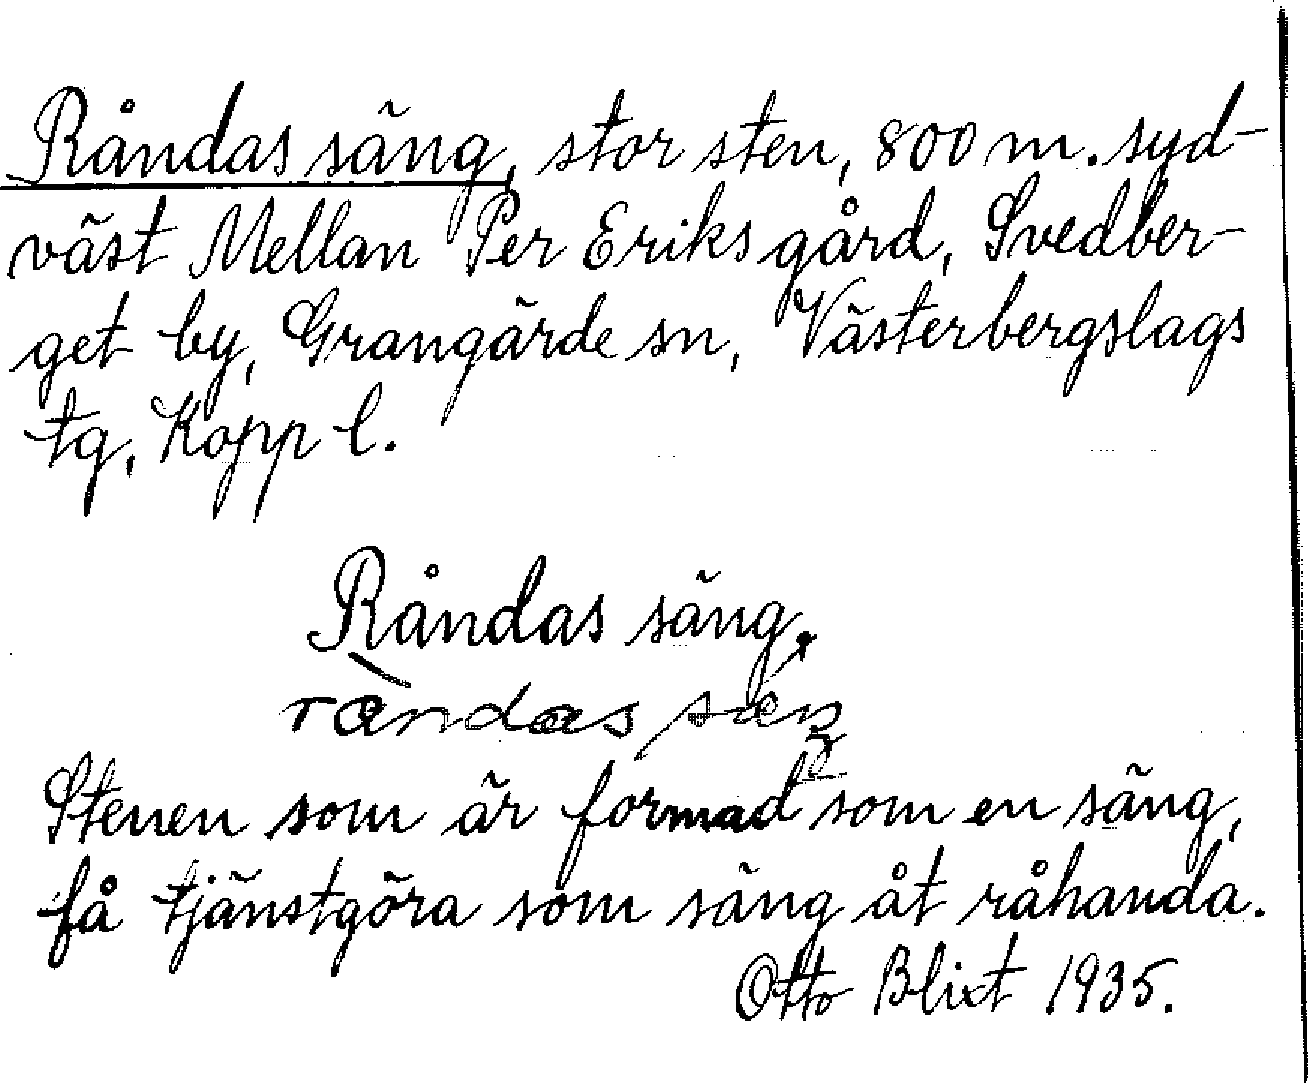 Råndas säng, stor sten, 800 m. syd-
väst Mellan Per Eriks gård, Svedber-
get by, Grangärde sn, Västerbergslags
tg, Kopp l.
Råndas säng.
ràndas sæŋ
Stenen som är formad som en säng,
få tjänstgöra som säng åt råhanda.
Otto Blixt 1935.